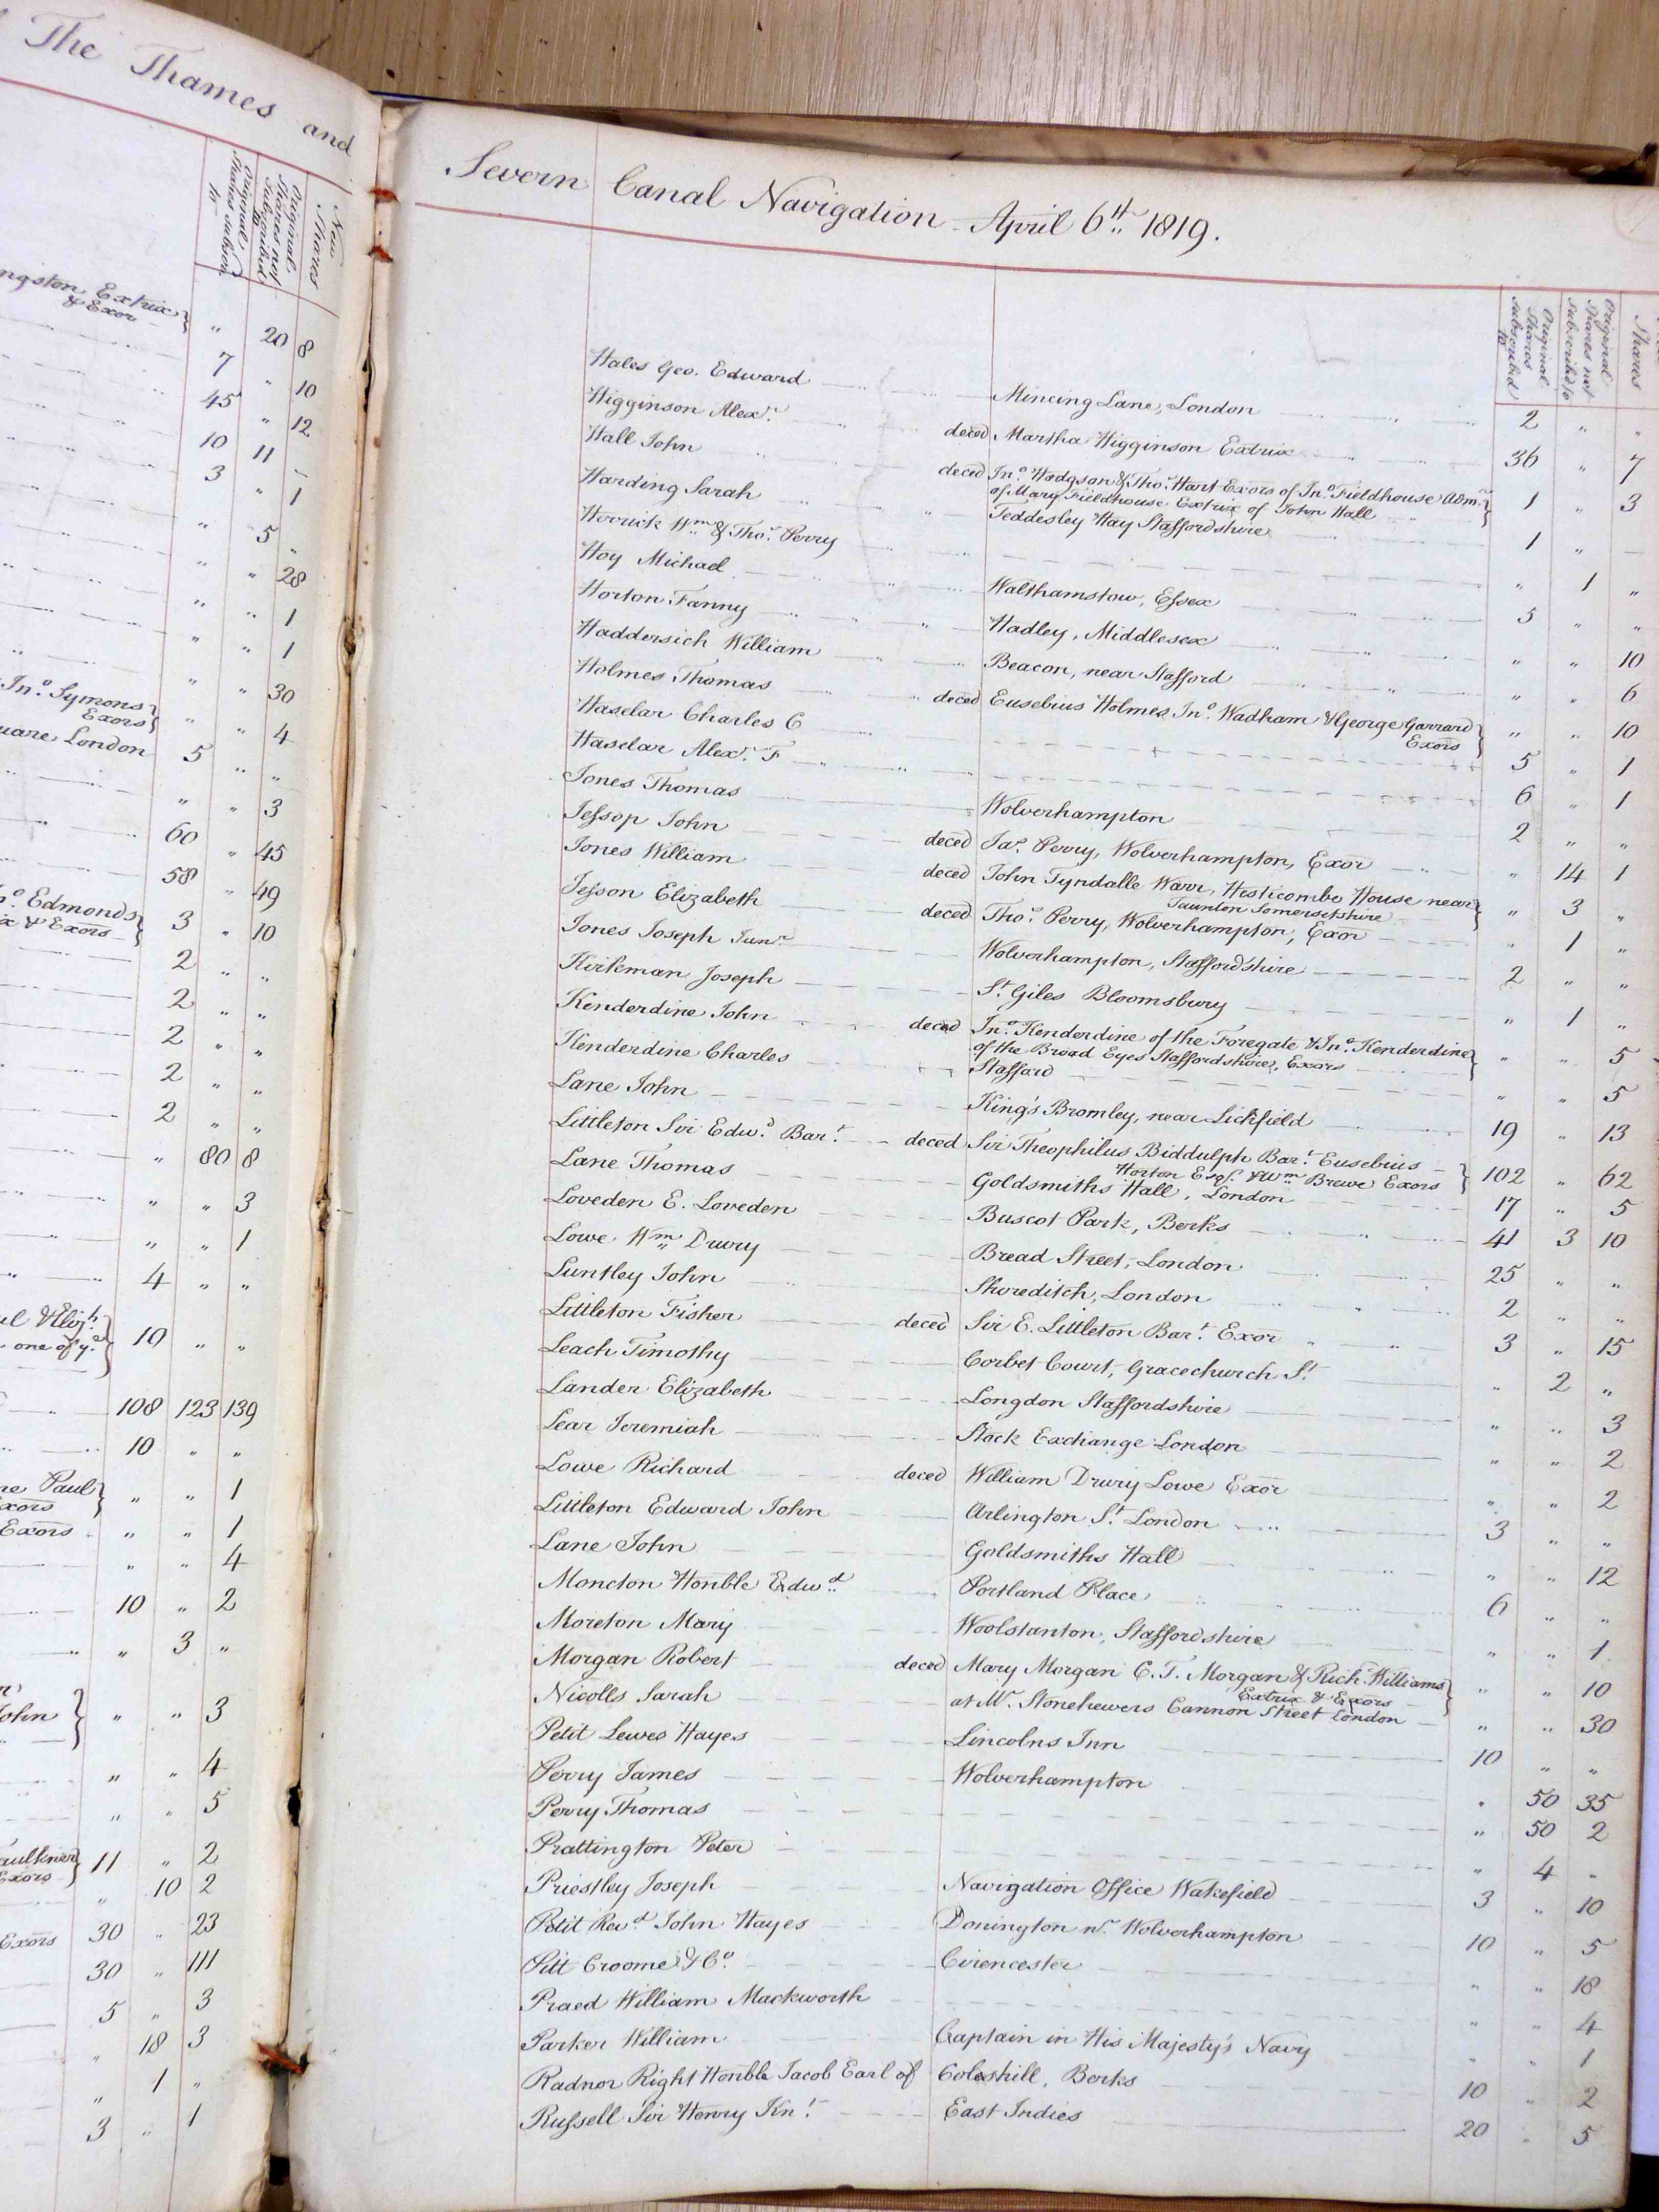 The Thames and
New Shares
Original Shares not subscribed to
Original Shares subscrib'd to
ngston, Extrix
& Exor
" 20 8
7 " 10
45 " 12
10 11 –
3 " 1
" 5 "
" " 28
" " 1
" " 1
" " 30
Jno. Symons
Exors
" " 4
uare London 5 " "
" " 3
60 " 45
58 " 49
no. Edmonds
x & Exors
3 " 10
2 " "
2 " "
2 " "
2 " "
2 " "
" 80 8
" " 3
" " 1
4 " "
ul & Eliz:h
one of y.e
10 " "
108 123 139
10 " "
ne Paul
xors
" " 1
Exors " " 1
" " 4
10 " 2
" 3 "
John
" " 3
" " 4
" " 5
aulkner
Exors
11 " 2
" 10 2
Exors 30 " 23
30 " 111
5 " 3
" 18 3
" 1 "
3 " 1
Severn Canal Navigation – April 6th 1819.
Original Shares subscribed to
Original Shares not subscribed to
Shares
Hales Geo. Edward Mincing Lane, London 2 " "
Higginson Alexr. deced Martha Higginson Extrix 36 " 7
Hall John deced Jno. Hodgson & Tho. Hart Exors of Jno. Fieldhouse Admr.
of Mary Fieldhouse Extrix of John Hall 1 " 3
Harding Sarah Teddesley Hay Staffordshire 1 " –
Herrick Wm. & Thos. Perry " 1 "
Hoy Michael Walthamstow, Essex 5 " "
Horton Fanny Hadley, Middlesex " " 10
Haddersich William Beacon, near Stafford " " 6
Holmes Thomas deced Eusebius Holmes, Jno. Wadham & George Garrard
Exors " " 10
Haselar Charles C 5 " 1
Haselar Alexr. F 6 " 1
Jones Thomas Wolverhampton 2 " "
Jesson John deced Jas. Perry, Wolverhampton, Exor " 14 1
Jones William deced John Tyndalle Warr, Hesticombe House near
Taunton Somersetshire " 3 "
Jesson Elizabeth deced Thos. Perry, Wolverhampton, Exor " 1 "
Jones Joseph Junr. Wolverhampton, Staffordshire 2 " "
Kirkman Joseph St. Giles Bloomsbury " 1 "
Kenderdine John deced Jno. Kenderdine of the Foregate & Jno. Kenderdine
of the Broad Eyes Staffordshire, Exors " " 5
Kenderdine Charles Stafford " " 5
Lane John King's Bromley, near Lichfield 19 " 13
Littleton Sir Edwd. Bart. deced Sir Theophilus Biddulph Bart. Eusebius
Horton Esqr. & Wm. Brewe Exors 102 " 62
Lane Thomas Goldsmiths Hall, London 17 " 5
Loveden E. Loveden Buscot Park, Berks 41 3 10
Lowe Wm. Drury Bread Street, London 25 " "
Luntley John Shoreditch, London 2 " "
Littleton Fisher deced Sir E. Littleton Bart. Exor 3 " 15
Leach Timothy Corbet Court, Gracechurch St. " 2 "
Lander Elizabeth Longdon Staffordshire " " 3
Lear Jeremiah Stock Exchange London " " 2
Lowe Richard deced William Drury Lowe Exor " " 2
Littleton Edward John Arlington St. London 3 " "
Lane John Goldsmiths Hall " " 12
Moncton Honble Edwd. Portland Place 6 " "
Moreton Mary Woolstanton, Staffordshire " " 1
Morgan Robert deced Mary Morgan C. T. Morgan & Rich. Williams
Extrix & Exors " " 10
Nicolls Sarah at Mr. Stonehewers Cannon Street London " " 30
Petit Lewes Hayes Lincolns Inn 10 " "
Perry James Wolverhampton " 50 35
Perry Thomas " 50 2
Prattington Peter " 4 "
Priestley Joseph Navigation Office Wakefield 3 " 10
Petit Revd. John Hayes Donington nr. Wolverhampton 10 " 5
Pitt Croome & Co. Cirencester " " 18
Praed William Mackworth " " 4
Parker William Captain in His Majesty's Navy " " 1
Radnor Right Honble Jacob Earl of Coleshill, Berks 10 " 2
Russell Sir Henry Knt. East Indies 20 " 5